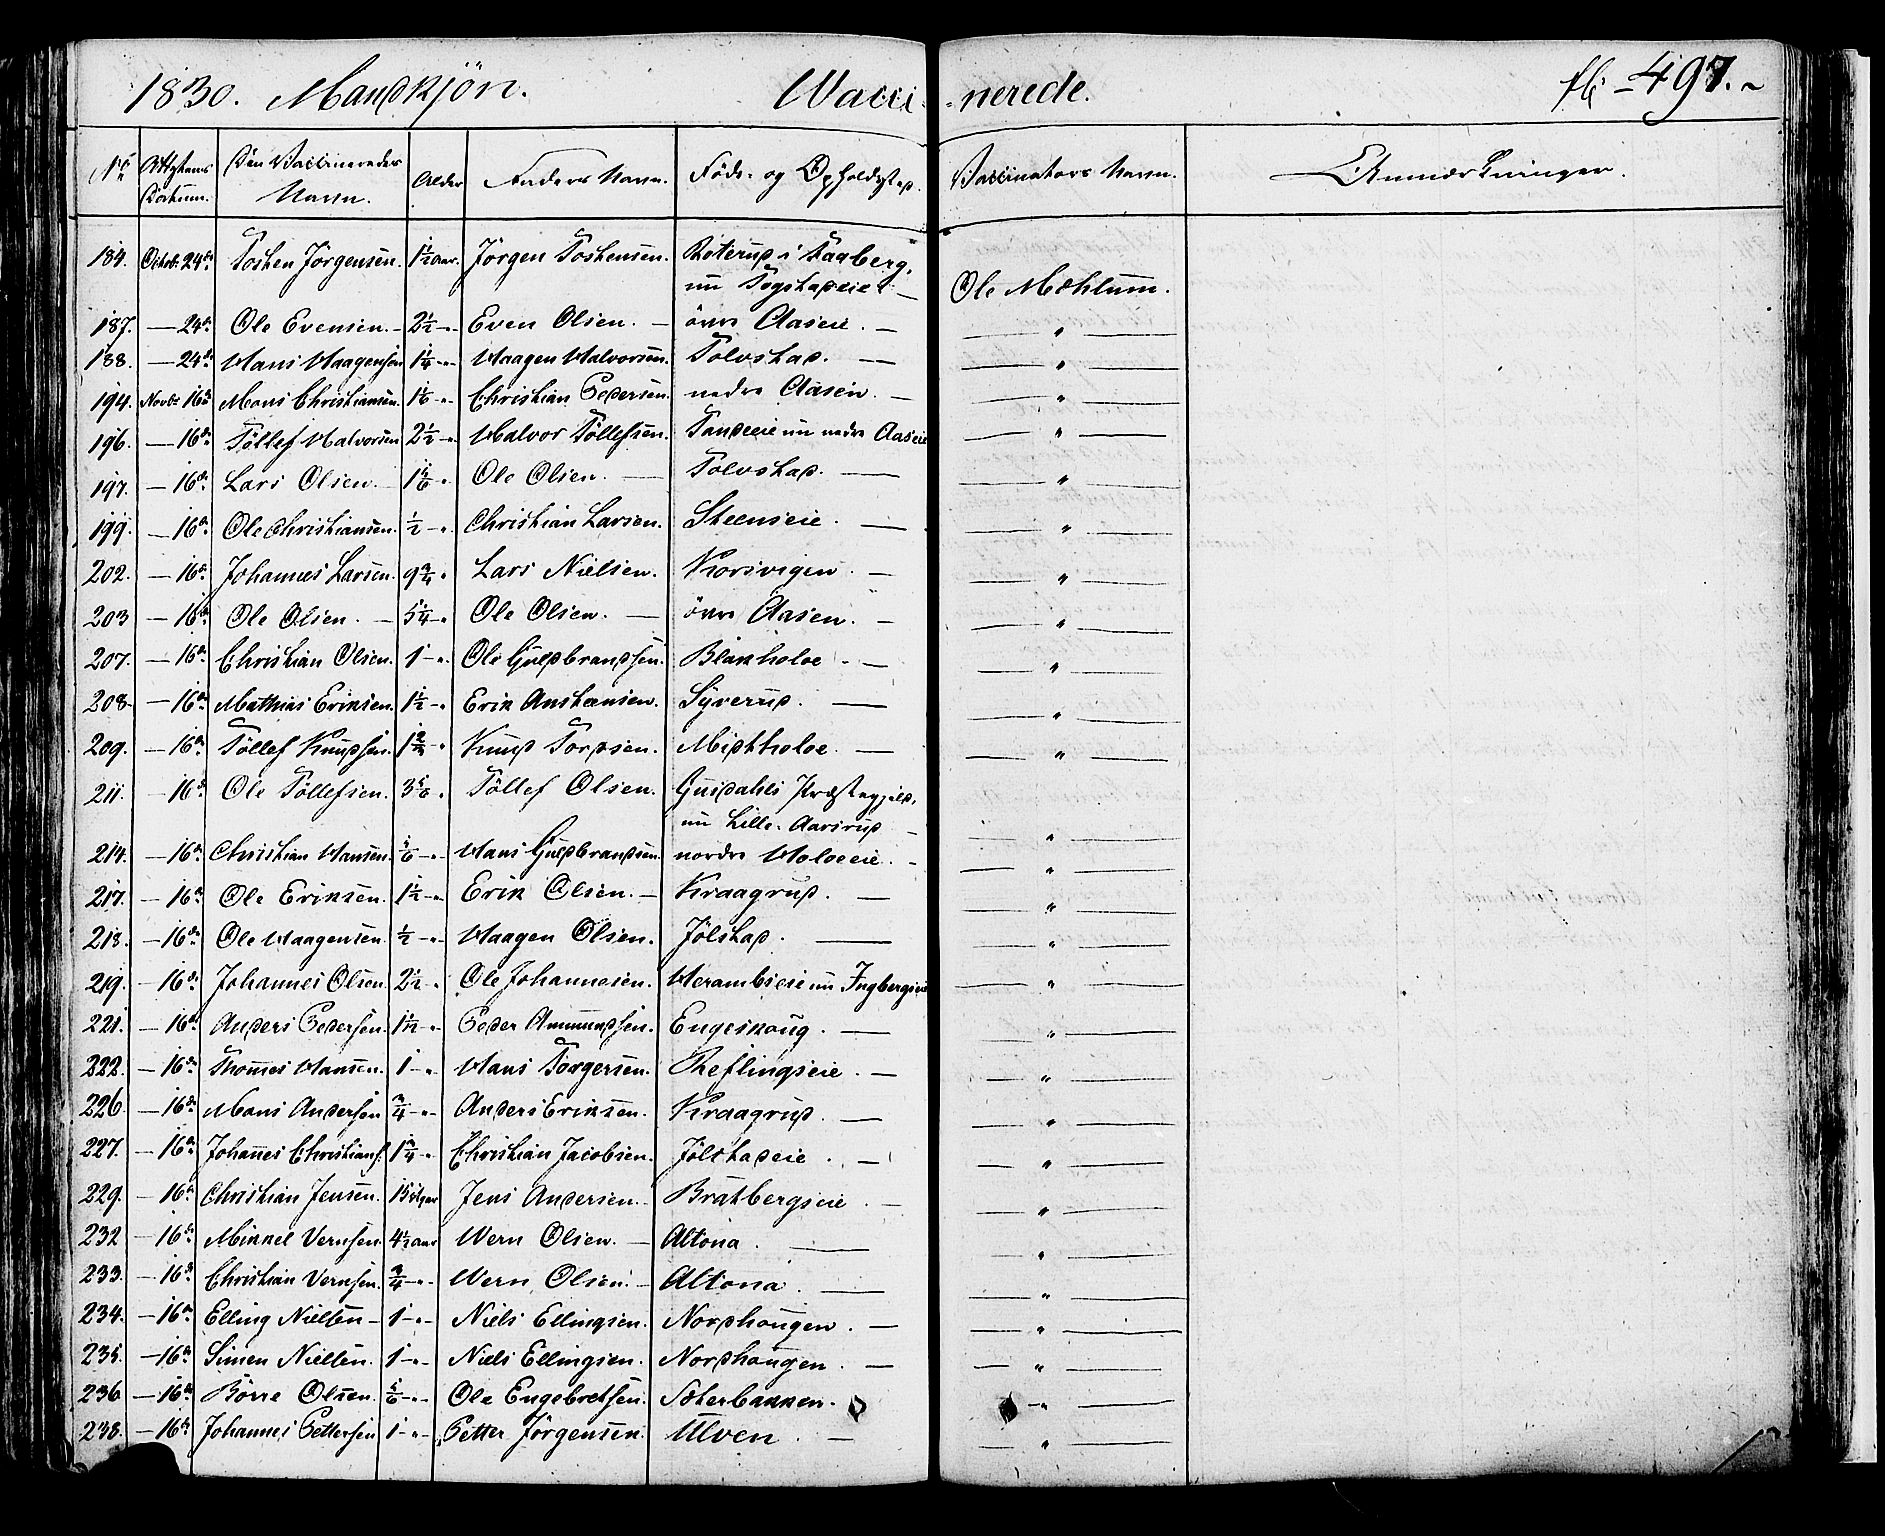 1830. Mandkjön. Vacci- -nerede. fl: -497.-
No Attestens Datum. Den Vaccineredes Navn. Alder Faders Navn. Føde- og Opholdsstæd. Vaccinators Navn. Anmærkninger.
184. Octob: 24de Tosten Jörgensen. 1½ aar. Jörgen Tostensen. Röterud i Faaberg, nu Togstadeie. — Ole Mæhlum.
187. — 24de Ole Evensen. — 2½ — " Even Olsen. — övre Aaseie. — — " —
188. — 24de Hans Haagensen 1¼ — " Haagen Halvorsen. Tolvstad. — — " —
194. Novbr 16de Mons Christiansen. 1⅙ — " Christian Pedersen. nedre Aasen. — — " —
196. — 16de Töllef Halvorsen 2½ — " Halvor Töllefsen. nu nedre Aaseie — " —
197. — 16de Lars Olsen. — Ole Olsen. — Tolvstad. — — " —
199. — 16de Ole Christiansen. ½ — " Christian Larsen. Steenseie. — — " —
202. — 16de Johannes Larsen. 9¾ " Lars Nielsen. Korsvigen. — — " —
203 — 16de Ole Olsen. — Ole Olsen. — övre Aasen. — — " —
207. — 16de Christian Olsen. 1 — " Ole Guldbrandsen. — — " —
208. — 16de Mathias Eriksen. 1½ — " Erik Anstensen. Syverud. — — " —
209. — 16de Töllef Knudsen. 1⅔ — " Knud Tordsen. — — " —
211. — 16de Ole Töllefsen. 3⅚ " Töllef Olsen. Gusdahls Præstegjeld, nu Lille-Aarsrud — — " —
214. — 16de Christian Hansen. Hans Guldbrandsen. nordre Holoeeie. — — " —
217. — 16de Ole Eriksen. 1½ — " Erik Olsen. — Kraagrud. — — " —
218. — 16de Ole Haagensen. ½ — " Haagen Olsen. Jölstad. — — " —
219. — 16de Johannes Olsen. 2½ — " Ole Johannesen. nu Ingbergseie — " —
221. — 16de Anders Pedersen. Peder Ammundsen. Engeskoug. — — " —
222. — 16de Thomes Hansen. 1 — " Hans Torgersen. Reflingseie. — — " —
226. — 16de Mons Andersen ¾ — " Anders Eriksen. Kraagrud. — — " —
227. — 16de Johañes Christians: 1¾ — " Christian Jacobsen. Jölstadeie. — — " —
229. — 16de Christian Jensen. Jens Andersen. — Bratbergseie. — — " —
232 — 16de Mikkel Vernsen. 4½ aar Wern Olsen. — Altona. — — " —
233. — 16de Christian Vernsen. ¾ — " Wern Olsen. — Altona. — — " —
234. — 16de Elling Nielsen — 1 — " Niels Ellingsen. Nordhougen. — — " —
235. — 16de Simen Nielsen. 1 — " Niels Ellingsen. Nordhougen. — — " —
236 — 16de Börre Olsen. ⅚ — " Ole Engebretsen. Sæterbakken. — " —
238. — 16de Johannes Pettersen 1 — " Petter Jörgensen. Ulven. — — " —